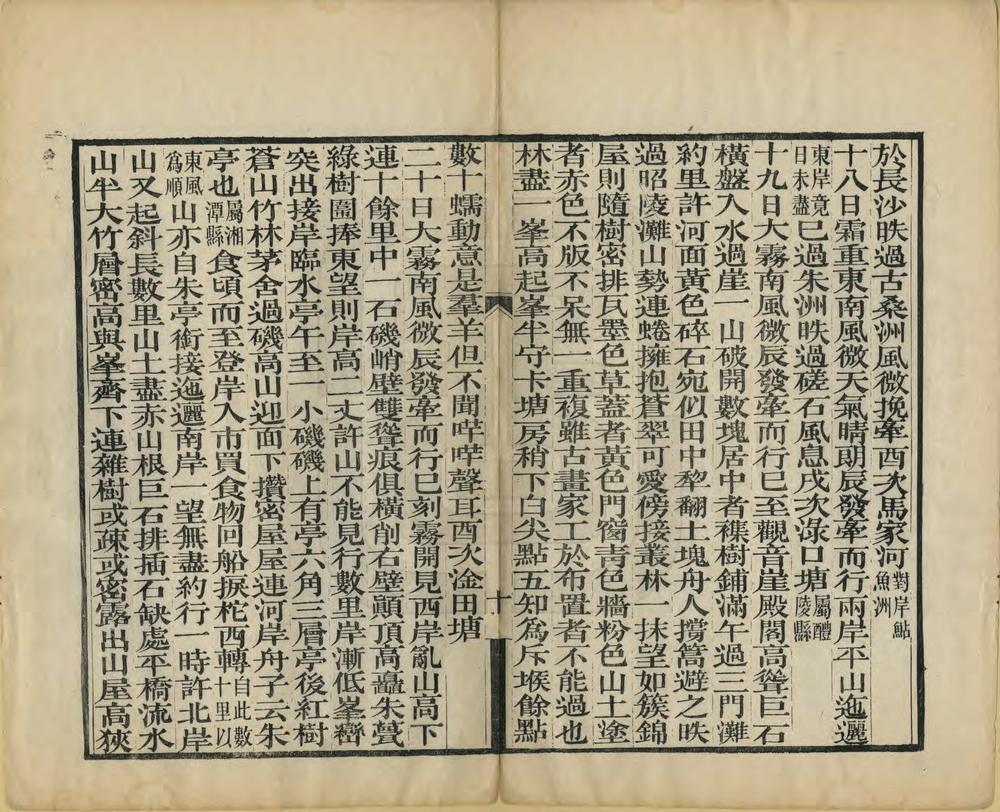 於長沙昳過古桑洲風微挽牽酉次馬家河對岸鮎魚洲
十八日霜重東南風微天氣晴朗辰發牽而行兩岸平山迤邐
東岸竟日未盡巳過朱洲昳過磋石風息戌次淥口塘屬醴陵縣
十九日大霧南風微辰發牽而行巳至觀音崖殿閣高聳巨石
橫盤入水過崖一山破開數塊居中者襍樹鋪滿午過三門灘
約里許河面黃色碎石宛似田中犁翻土塊舟人撐篙避之昳
過昭陵灘山勢連蜷擁抱蒼翠可愛傍接叢林一抹望如簇錦
屋則隨樹密排瓦墨色草蓋者黃色門窗青色牆粉色山土塗
者赤色不版不呆無一重複雖古畫家工於布置者不能過也
林盡一峯高起峯半守卡塘房稍下白尖點五知為斥堠餘點
十
數十蠕動意是羣羊但不聞哶哶聲耳酉次淦田塘
二十日大霧南風微辰發牽而行巳刻霧開見西岸亂山高下
連十餘里中一石磯峭壁雙聳痕俱橫削右壁顛頂高矗朱甍
綠樹圍捧東望則岸高二丈許山不能見行數里岸漸低峯巒
突出接岸臨水亭午至一小磯磯上有亭六角三層亭後紅樹
蒼山竹林茅舍過磯高山迎面下攢密屋屋連河岸舟子云朱
亭也屬湘潭縣食頃而至登岸入市買食物回船捩柁西轉自此數十里以
東風為順山亦自朱亭銜接迤邐南岸一望無盡約行一時許北岸
山又起斜長數里山土盡赤山根巨石排插石缺處平橋流水
山半大竹層密高與峯齊下連雜樹或疎或密露出山屋高狹